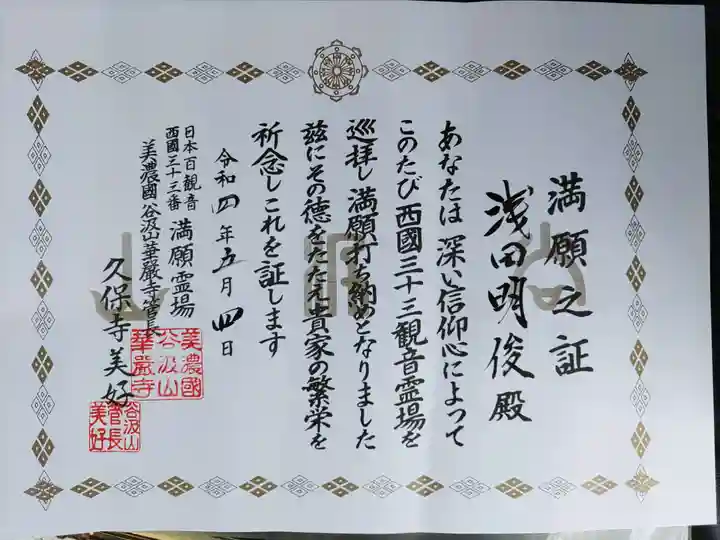 満願之証
浅田明俊殿
あなたは深い信仰心によって
このたび西國三十三観音霊場を
巡拝し満願打ち納めとなりました
茲にその徳をたたえ貴家の繁栄を
祈念しこれを証します
令和四年五月四日
日本百観音
西國三十三番
満願霊場
美濃國谷汲山華厳寺管長
久保寺美好
美濃國
谷汲山
華嚴寺
谷汲山
管長
美好